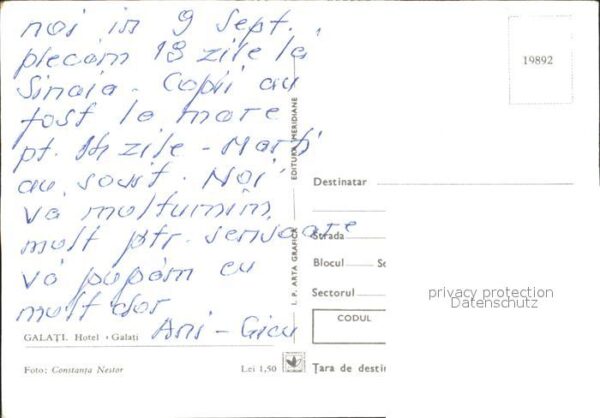 noi in 9 sept.
plecăm 18 zile la
Sinaia - Copii au
fost la mare
pt. 14 zile - Marți
au sosit. Noi
vă mulțumim
mult ptr. scrisoare
vă pupăm cu
mult dor
Ani - Gicu
GALAȚI. Hotel «Galați
Foto: Constanța Nestor
Lei 1,50
I. P. ARTA GRAFICĂ
EDITURA MERIDIANE
19892
Destinatar
Strada
Blocul
Sc
Sectorul
CODUL
Țara de destin
privacy protection
Datenschutz